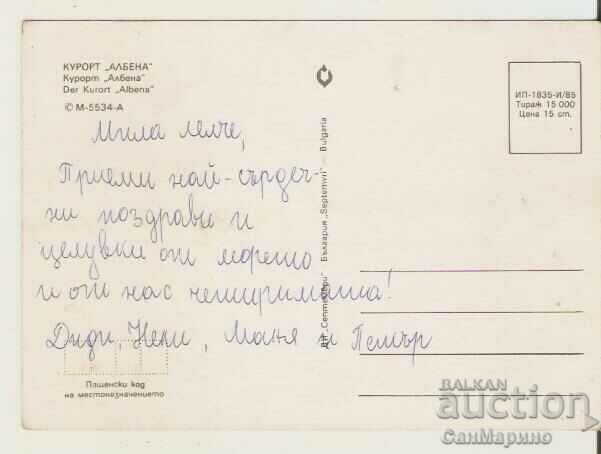 КУРОРТ „АЛБЕНА“
Курорт „Албена“
Der Kurort „Albena“
© М-5534-А
ИП-1835-И/85
Тираж 15 000
Цена 15 ст.
Мила лелче,
Приеми най-сърдеч-
ни поздрави и
целувки от морето
и от нас четиримата!
Диди, Нели, Маня и Петър
ДП „Септември“ — България „Septemvri“ — Bulgaria
Пощенски код
на местоназначението
BALKAN
auction
СанМарино